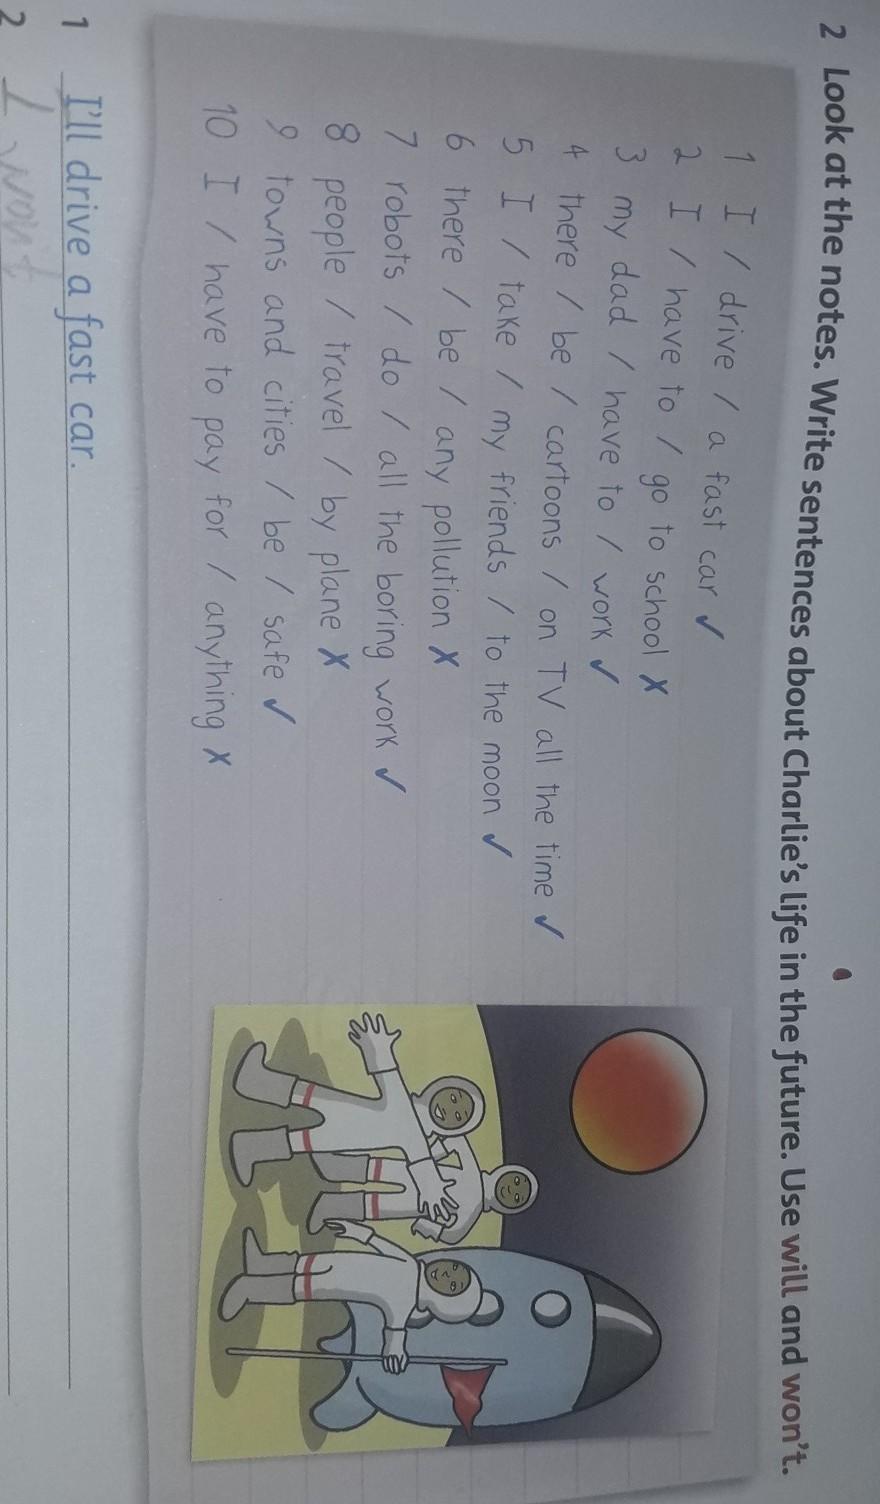 2 Look at the notes. Write sentences about Charlie's life in the future. Use will and won't.
1 I / drive / a fast car ✓
2 I / have to / go to school ✗
3 my dad / have to / work ✓
4 there / be / cartoons / on TV all the time ✓
5 I / take / my friends / to the moon ✓
6 there / be / any pollution ✗
7 robots / do / all the boring work ✓
8 people / travel / by plane ✗
9 towns and cities / be / safe ✓
10 I / have to pay for / anything ✗
1 I'll drive a fast car.
2 I won't